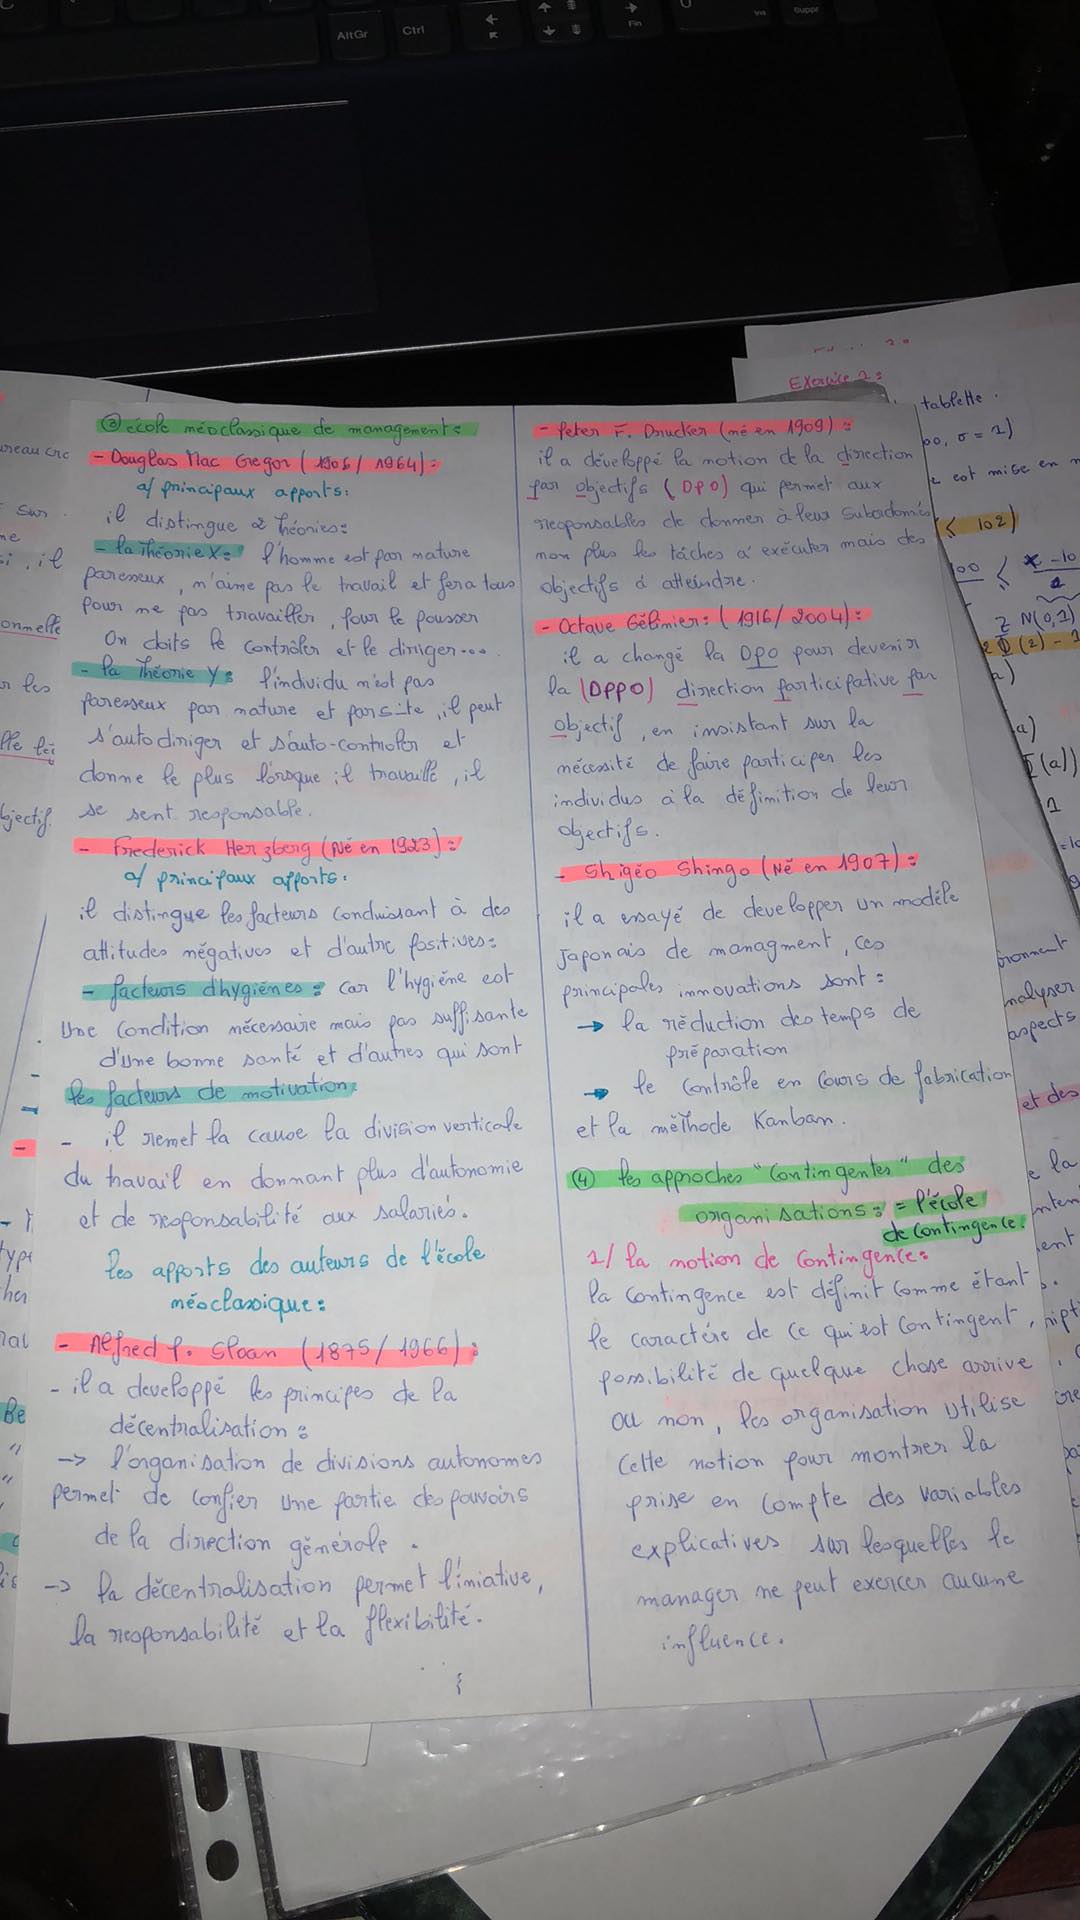 AltGr
Ctrl
Fin
Suppr
③ école néoclassique de management:
- Douglas Mac Gregor (1906/1964):
a/ principaux apports:
il distingue 2 théories:
- la Théorie X: l'homme est par nature
paresseux, n'aime pas le travail et fera tous
pour ne pas travailler, pour le pousser
On doits le contrôler et le diriger....
- la Théorie Y: l'individu n'est pas
paresseux par nature et parsite, il peut
s'autodiriger et s'auto-contrôler et
donne le plus lorsque il travaille, il
se sent responsable.
- Frederick Herzberg (Né en 1923):
a/ principaux apports:
il distingue les facteurs conduisant à des
attitudes négatives et d'autre positives:
- facteurs d'hygiènes: car l'hygiéne est
Une condition nécessaire mais pas suffisante
d'une bonne santé et d'autres qui sont
les facteurs de motivation
- il remet la cause la division verticale
du travail en donnant plus d'autonomie
et de responsabilité aux salariés.
les apports des auteurs de l'école
néoclassique:
- Alfred P. Sloan (1875/1966):
- il a developpé les principes de la
décentralisation:
-> l'organisation de divisions autonomes
permet de confier une partie des pouvoirs
de la direction générale.
-> la décentralisation permet l'iniative,
la responsabilité et la flexibilité.
- Peter F. Drucker (né en 1909):
il a développé la notion de la direction
par objectifs (DPO) qui permet aux
responsables de donner à leur subordonnés
non plus les tâches a exécuter mais des
objectifs à atteindre.
- Octave Gélinier: (1916/2004):
il a changé la DPO pour devenir
la (DPPO) direction participative par
objectif, en insistant sur la
nécessité de faire participer les
individus à la définition de leur
objectifs.
- Shigéo Shingo (Né en 1907):
il a essayé de developper un modéle
Japonais de managment, ces
principales innovations sont:
→ la réduction des temps de
préparation
→ le contrôle en cours de fabrication
et la méthode Kanban.
④ les approches "contingentes" des
organisations: = l'école
de contingence.
1/ la notion de contingence:
la contingence est définit comme étant
le caractére de ce qui est contingent,
possibilité de quelque chose arrive
ou non, les organisation utilise
cette notion pour montrer la
prise en compte des variables
explicatives sur lesquelles le
manager ne peut exercer aucune
influence.
Exercice 2:
tablette.